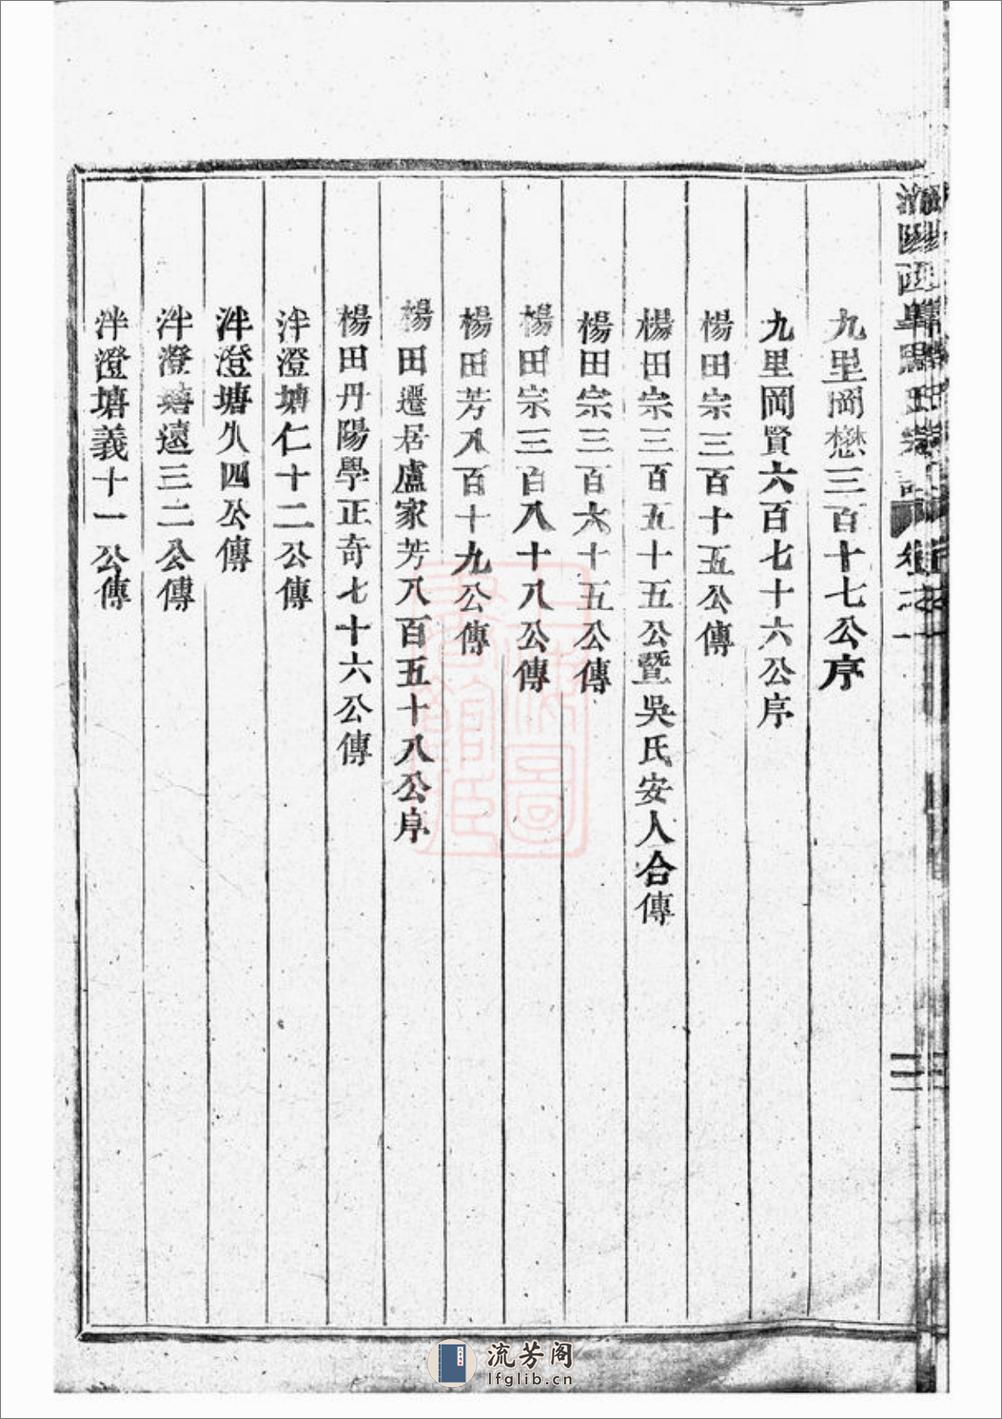 九里岡懋三百十七公序
九里岡賢六百七十六公序
楊田宗三百十五公傳
楊田宗三百五十五公暨吳氏安人合傳
楊田宗三百六十五公傳
楊田宗三百八十八公傳
楊田芳八百十九公傳
楊田遷居盧家芳八百五十八公序
楊田丹陽學正奇七十六公傳
泮澄塘仁十二公傳
泮澄塘久四公傳
泮澄塘遠三二公傳
泮澄塘義十一公傳
流芳阁
lfglib.cn